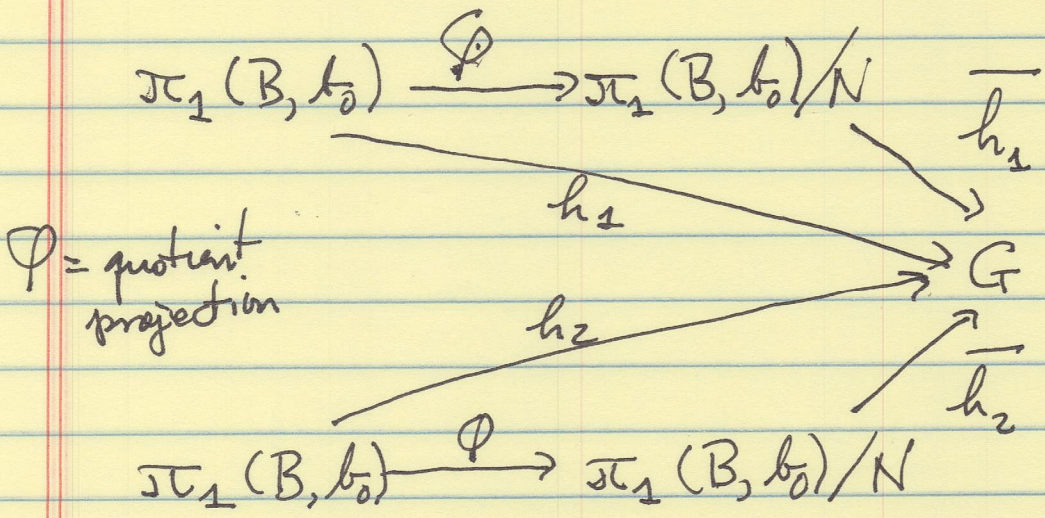 π₁(B, b₀) φ π₁(B, b₀)/N
h̅₁
h₁
φ = quotient
projection
G
h₂
h̅₂
π₁(B, b₀) φ π₁(B, b₀)/N